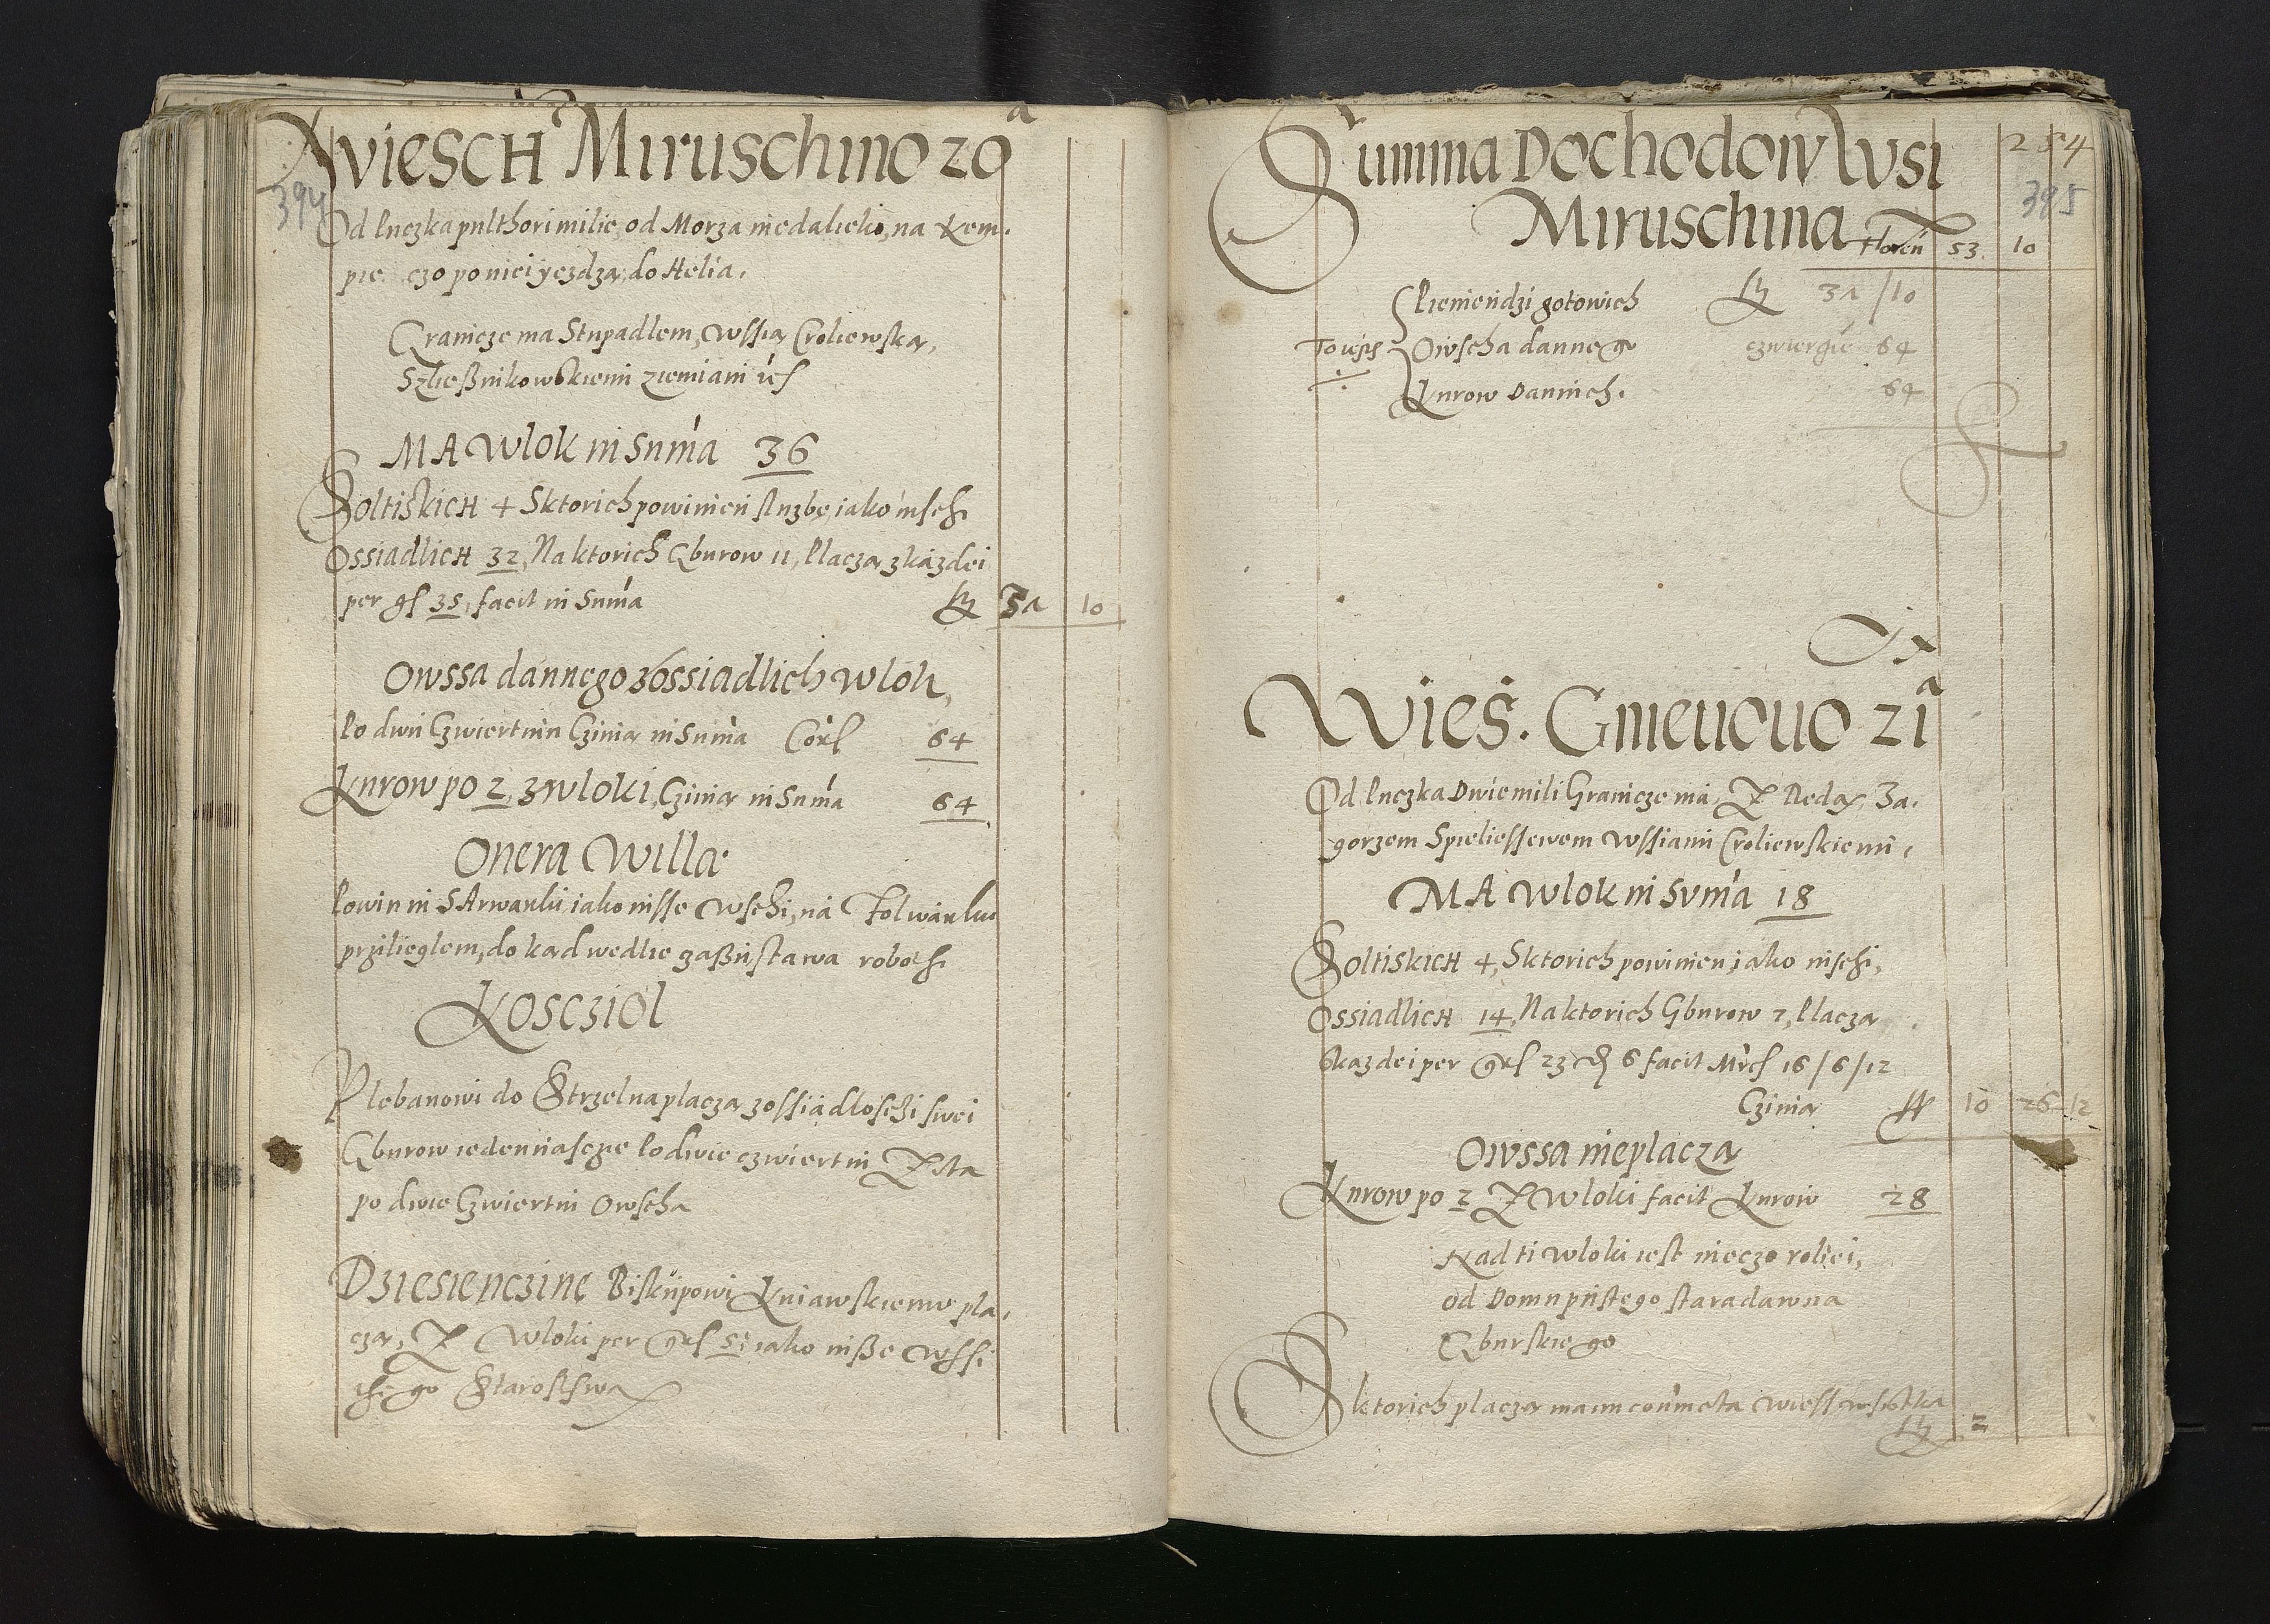 Wiesch Miruschino 20ª
394
Od Puczka pulthori milie, od Morza niedalieko, na Kem-
pie czo po niei yezdza do Helia.
Granicze ma Stupadlem, Wssia Croliewska,
Szließnikowskiemi ziemiani
MA Wlok in Suma 36
Soltiskich 4 Sktorich powinien sluzbe, iako inschi
Ossiadlich 32, Na ktorich Gburow 11, Placza zkazdei
per gs 35, facit in Suma fl 37 10
Owssa dannego z Ossiadlich Wlok,
Po dwu Czwiertnin Czinia in Suma Corl 64
Kurow po 2, z Wloki, Czinia in Suma 64
Onera Willæ
Powinni SArwarki iako insse Wschi, na Folwarku
przilieglem, do kad wedlie zaßiistawa robothi
Koscziol
Plebanowi do Strzelna placza z ossiadloschi swei
Gburow iedennascze Po dwie czwiertni Zita
po dwie Czwiertni Owscha
Dziesienczine Biskupowi Kuiawskiemu pla-
cza, Z Wloki per grs 5; iako inße Wssi
thego Starostwa
Summa Dochodow Wsi
254
Miruschina
395
Floren 53 10
Pieniendzi gotowich fl 37/10
To iest Owscha dannego czwiertnie 64
Kurow Dannich. 64
Wieś. Gnieuouo 21ª
Od Puczka Dwie mili Granicze ma, Z Reda, Za-
gorzem Spieliessewem Wssiami Croliewskiemi,
MA Wlok in Suma 18
Soltiskich 4, Sktorich powinien iako inschi,
Ossiadlich 14, Na ktorich Gburow 7, Placza
Skazdei per grs 23 ₰ 6 facit Mrcs 16/6/12
Czinia fl 10 26 12
Owssa nieplacza
Kurow po 2 Z Wloki facit Kurow 28
Nad ti Wloki iest nieczo roliei,
od Domu pustego staradawna
Gburskiego
Sktorich placza maiin Wiess wsistka
fl 2